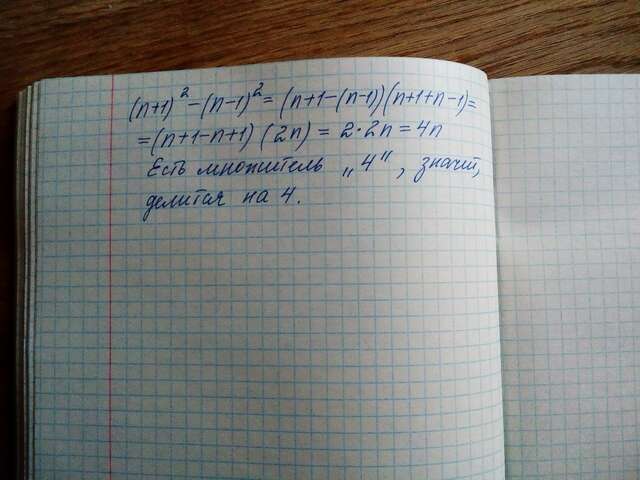 (n+1)² - (n-1)² = (n+1-(n-1))(n+1+n-1)=
=(n+1-n+1) (2n) = 2·2n = 4n
Есть множитель „4", значит,
делится на 4.